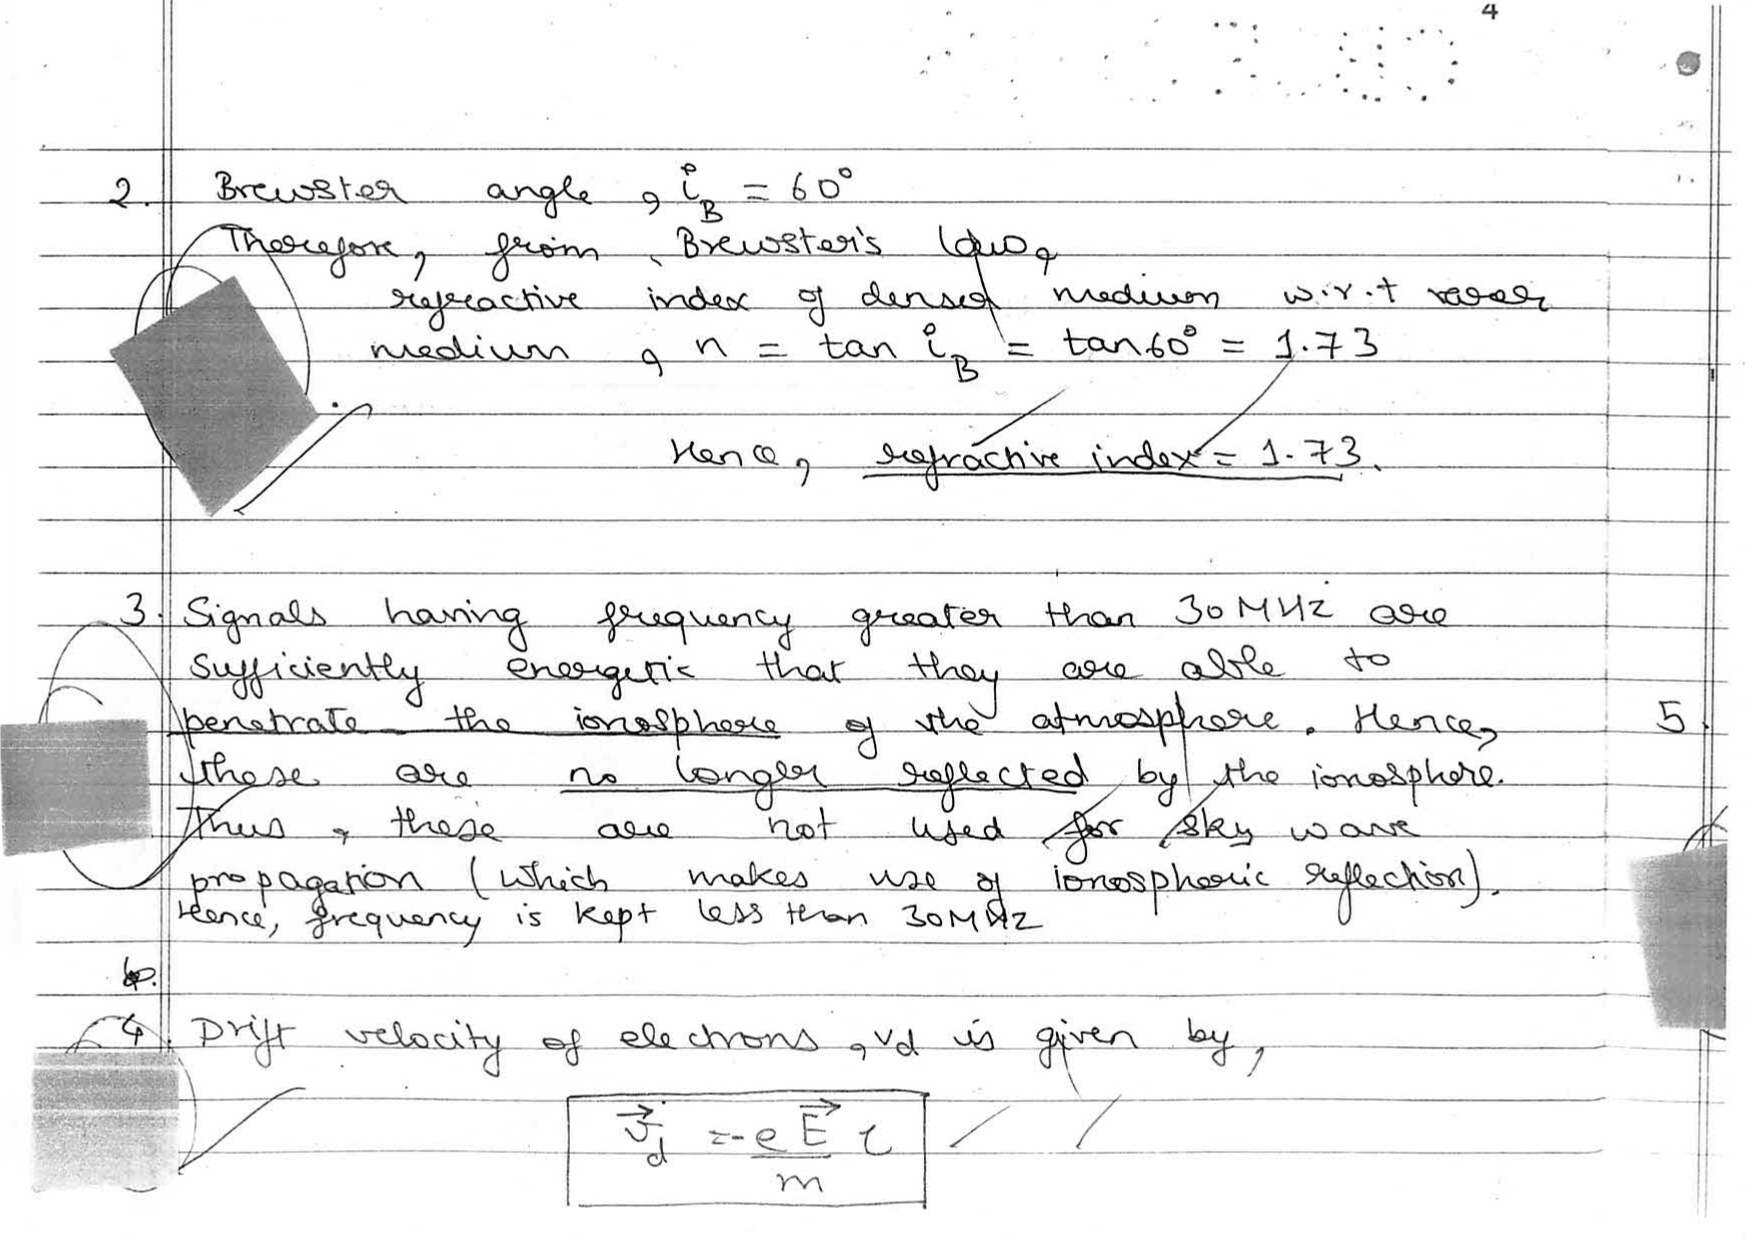 4
2. Brewster angle, i_B = 60°
Therefore, from Brewster's law,
refractive index of denser medium w.r.t rarer
medium, n = tan i_B = tan60° = 1.73
Hence, refractive index = 1.73.
3. Signals having frequency greater than 30MHz are
sufficiently energetic that they are able to
penetrate the ionosphere of the atmosphere. Hence,
5
these are no longer reflected by the ionosphere.
Thus, these are not used for sky wave
propagation (which makes use of ionospheric reflection).
Hence, frequency is kept less than 30MHz
4. Drift velocity of electrons, vd is given by,
v⃗_d = -eE⃗ τ
m